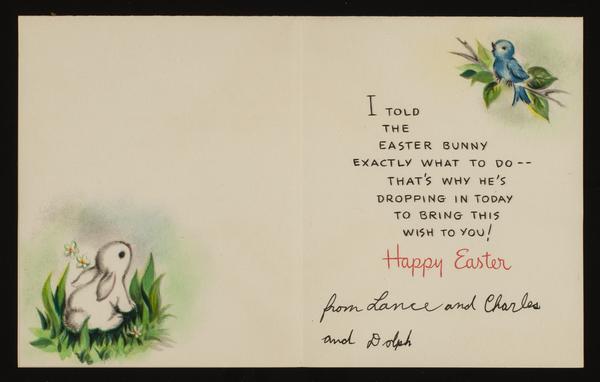 I TOLD
THE
EASTER BUNNY
EXACTLY WHAT TO DO--
THAT'S WHY HE'S
DROPPING IN TODAY
TO BRING THIS
WISH TO YOU!
Happy Easter
from Lance and Charles
and Dolph